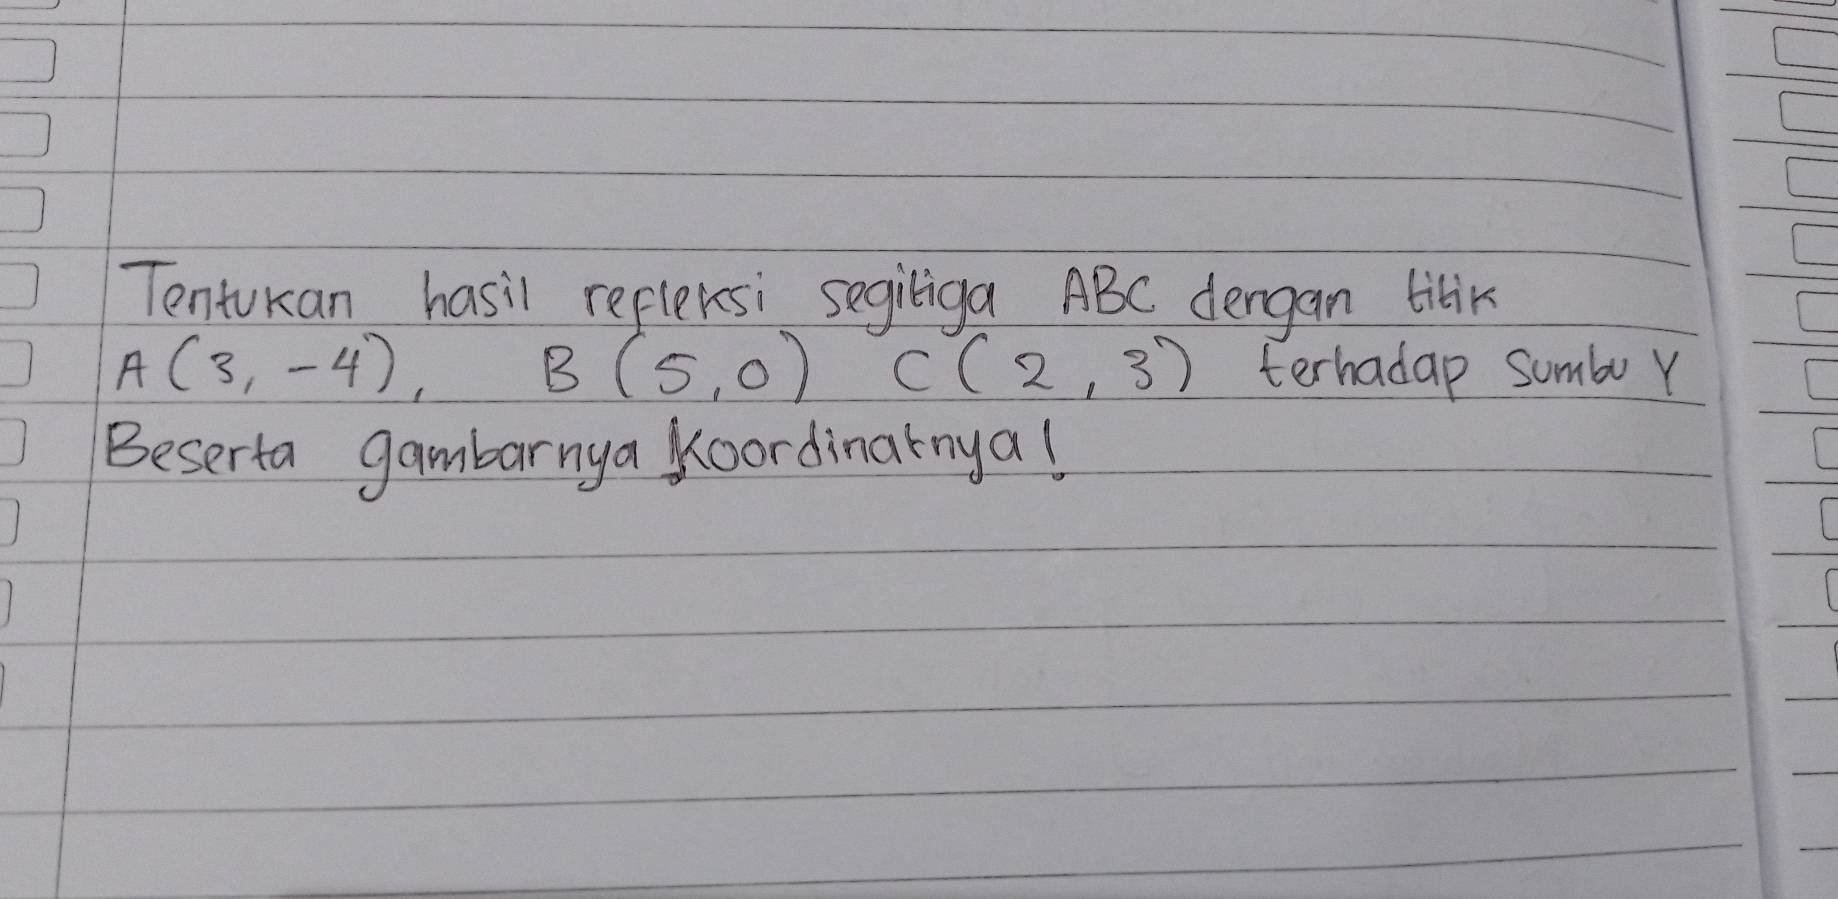 Tentukan hasil refleksi segitiga ABC dengan titik
A (3, -4), B (5,0) C (2, 3) terhadap sumbu Y
Beserta gambarnya Koordinatnya!